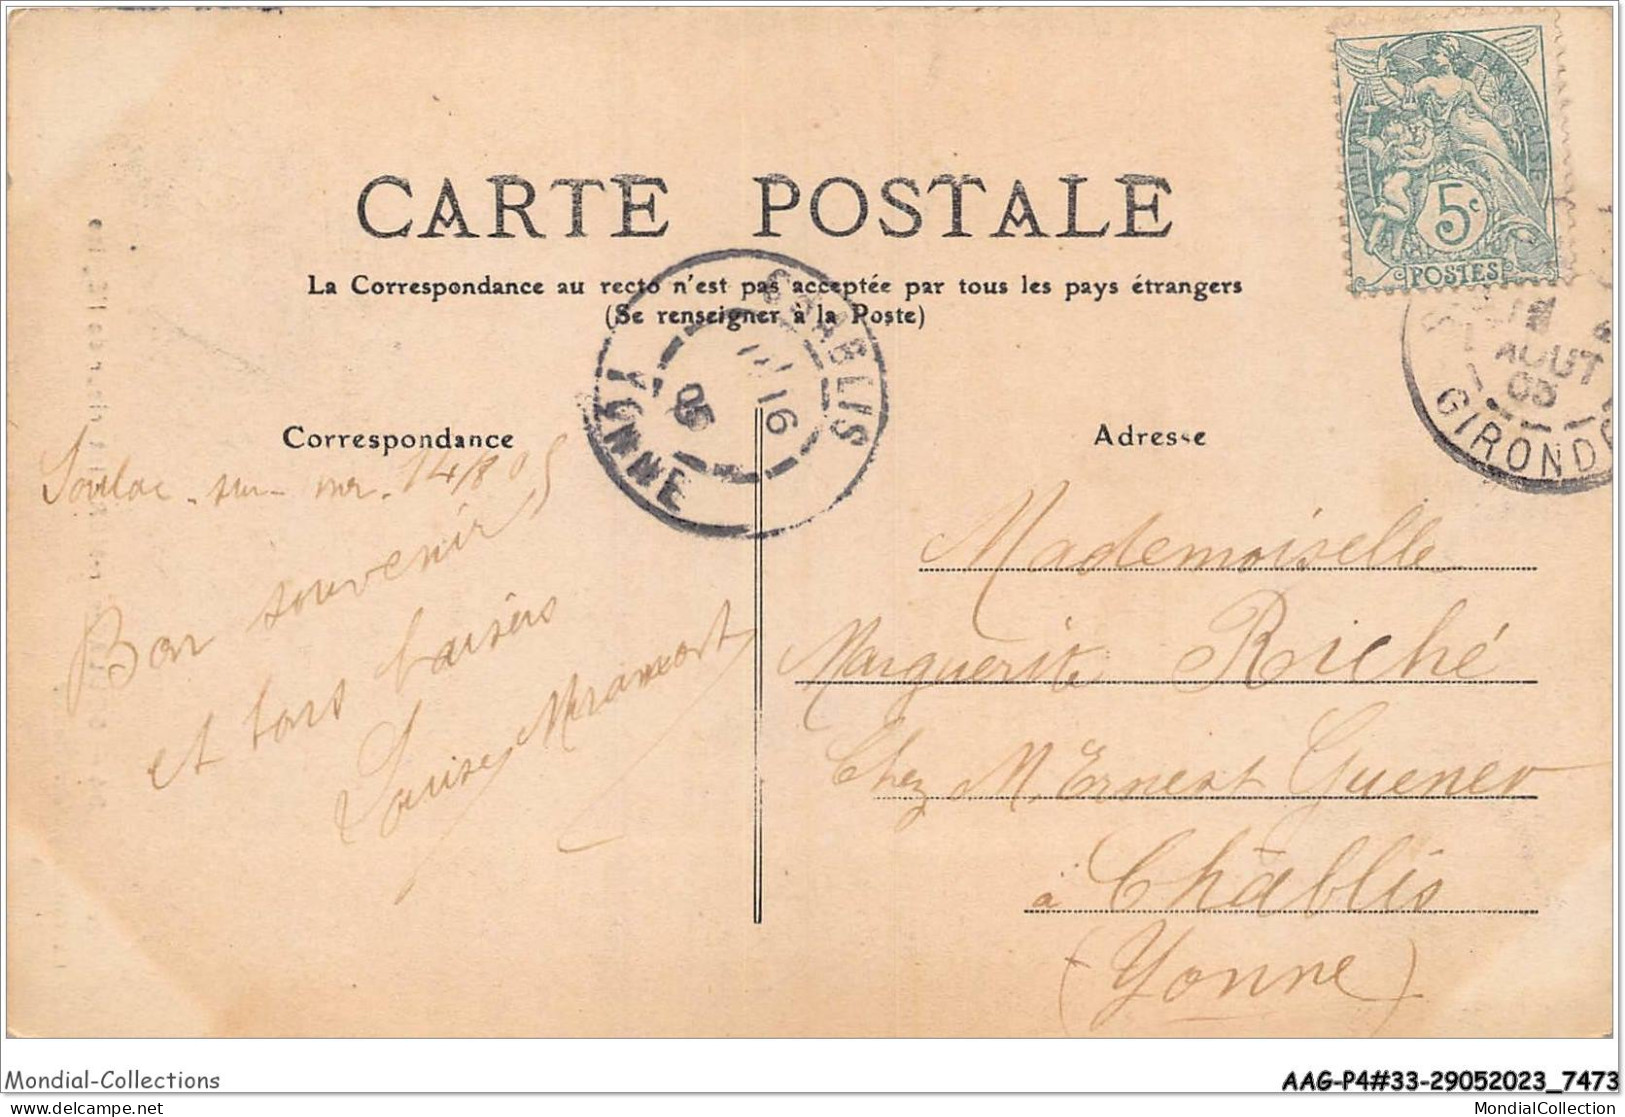 CARTE POSTALE
La Correspondance au recto n'est pas acceptée par tous les pays étrangers
(Se renseigner à la Poste)
RÉPUBLIQUE FRANÇAISE
5c
POSTES
CHABLIS
16
05
YONNE
AOUT
05
GIRONDE
Correspondance
Soulac-sur-mer 14/8 05
Bon souvenir
et bons baisers
Louise
Adresse
Mademoiselle
Marguerite Riché
Chez M. Ernest
à Chablis
(Yonne)
Mondial-Collections
AAG-P4#33-29052023_7473
www.delcampe.net
MondialCollection